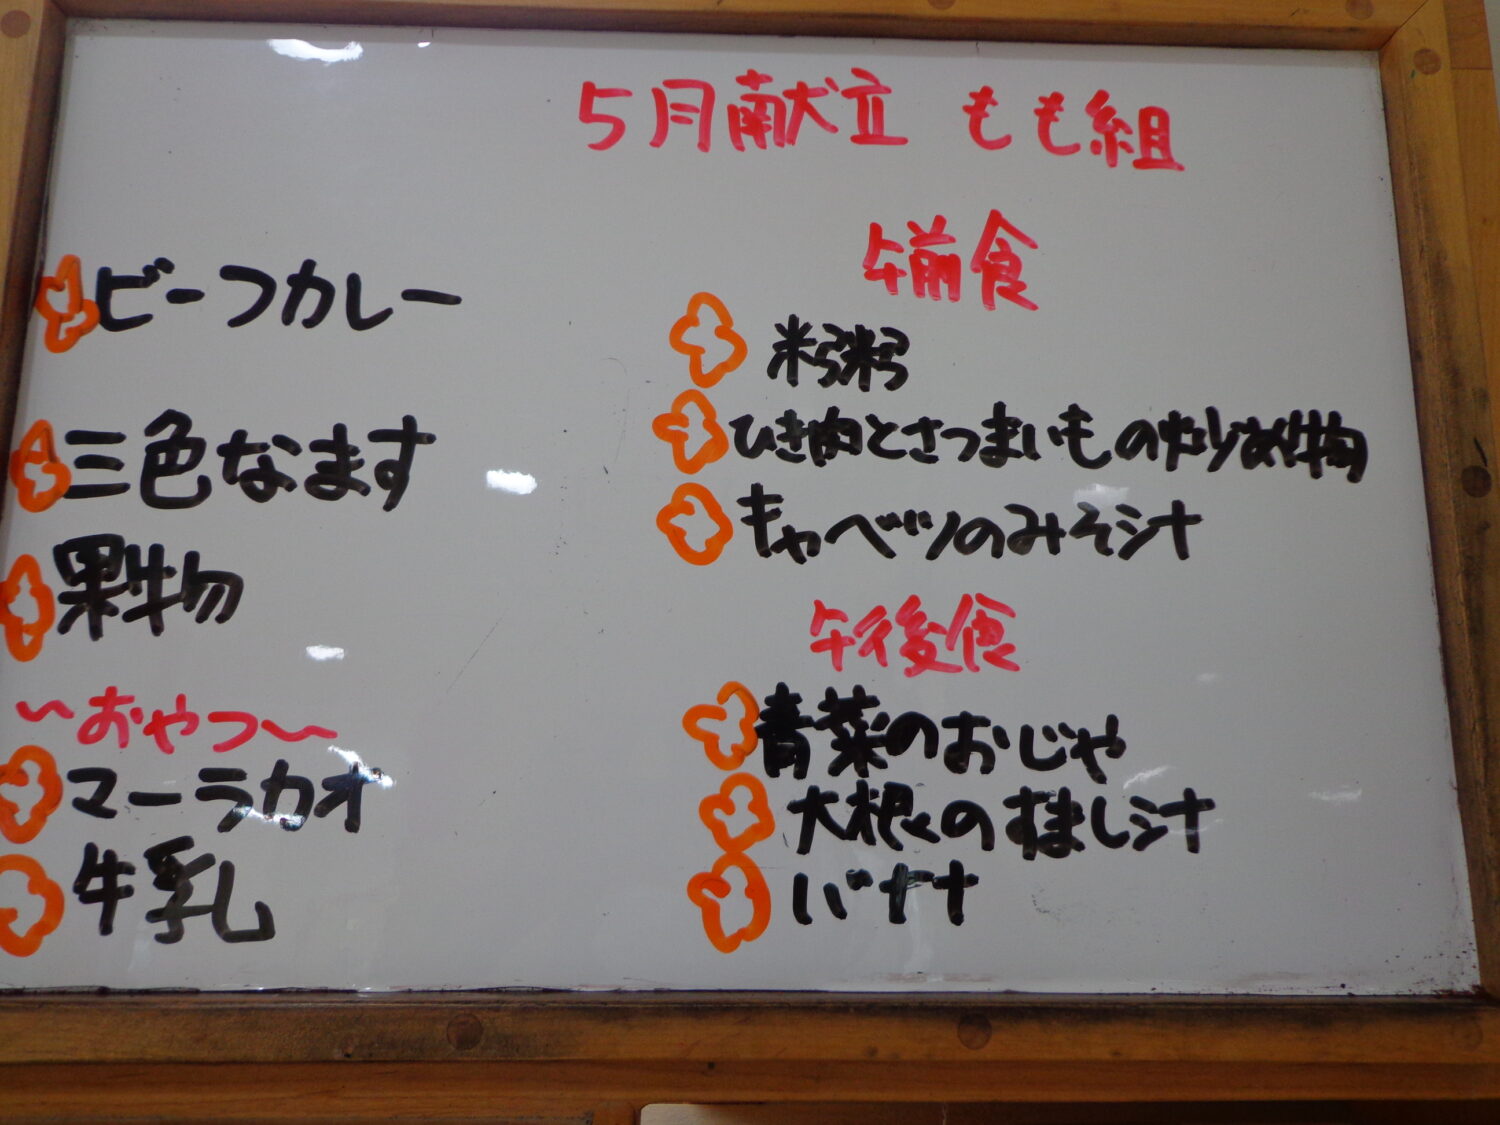 5月献立 もも組
ビーフカレー
三色なます
果物
〜おやつ〜
マーラカオ
牛乳
午前食
米粥
ひき肉とさつまいもの炒め物
キャベツのみそ汁
午後食
青菜のおじや
大根のすまし汁
バナナ